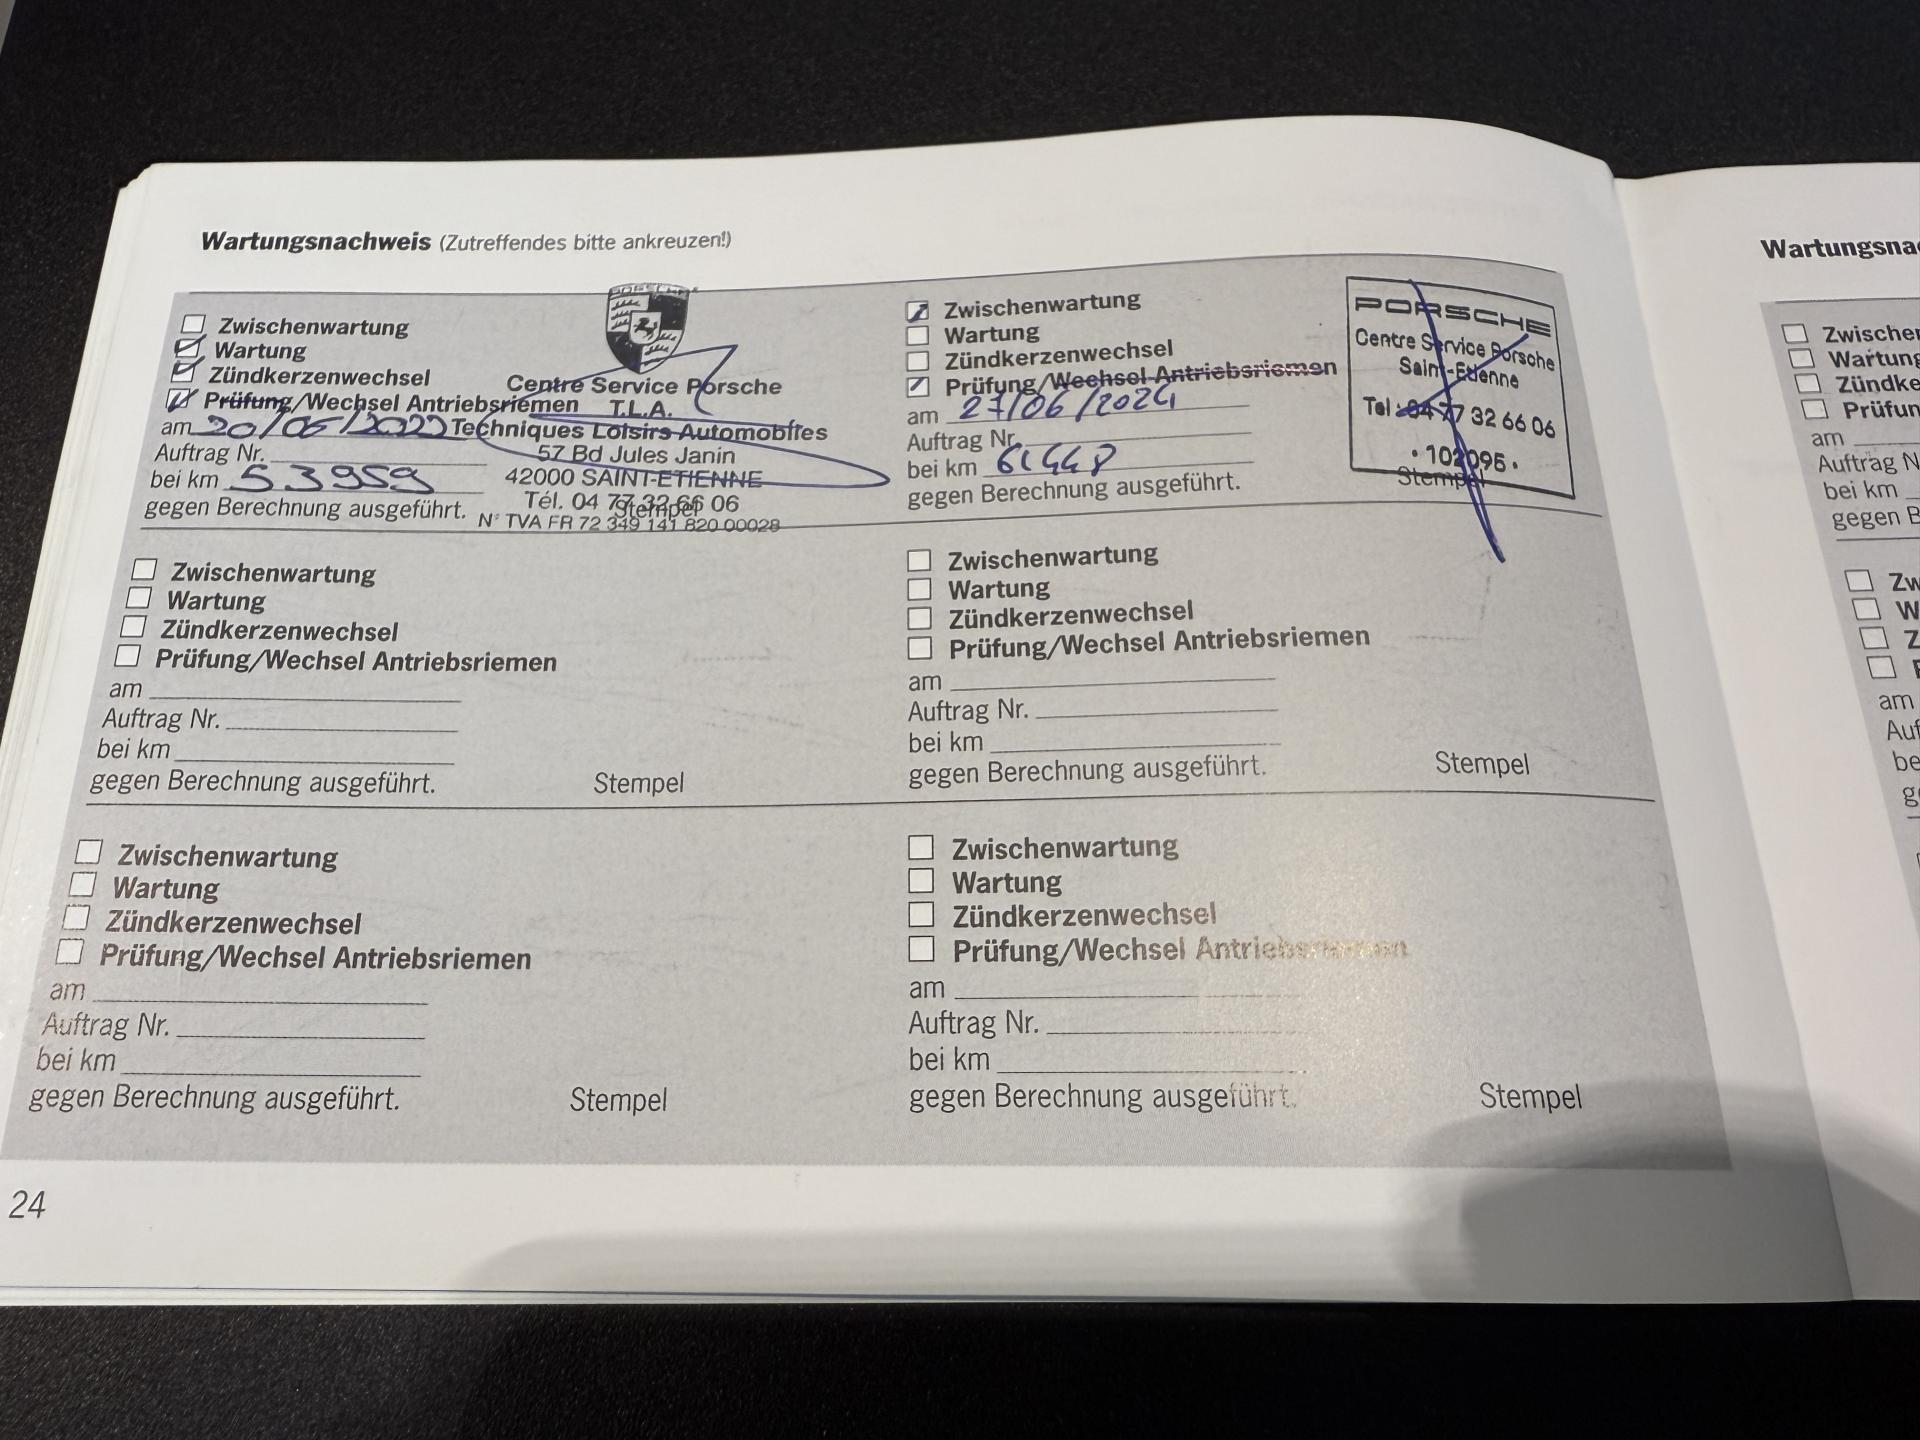 Wartungsnachweis (Zutreffendes bitte ankreuzen!)
Zwischenwartung
Wartung
Zündkerzenwechsel
Prüfung/Wechsel Antriebsriemen
am 20/06/2022
Auftrag Nr.
bei km 53959
gegen Berechnung ausgeführt.
PORSCHE
Centre Service Porsche
T.L.A.
Techniques Loisirs Automobiles
57 Bd Jules Janin
42000 SAINT-ETIENNE
Tél. 04 77 32 66 06
Stempel
N° TVA FR 72 349 141 820 00028
Zwischenwartung
Wartung
Zündkerzenwechsel
Prüfung/Wechsel Antriebsriemen
am 27/06/2024
Auftrag Nr.
bei km 61448
gegen Berechnung ausgeführt.
PORSCHE
Centre Service Porsche
Saint-Etienne
Tel : 04 77 32 66 06
• 102095 •
Stempel
Zwischenwartung
Wartung
Zündkerzenwechsel
Prüfung/Wechsel Antriebsriemen
am
Auftrag Nr.
bei km
gegen Berechnung ausgeführt.
Stempel
Zwischenwartung
Wartung
Zündkerzenwechsel
Prüfung/Wechsel Antriebsriemen
am
Auftrag Nr.
bei km
gegen Berechnung ausgeführt.
Stempel
Zwischenwartung
Wartung
Zündkerzenwechsel
Prüfung/Wechsel Antriebsriemen
am
Auftrag Nr.
bei km
gegen Berechnung ausgeführt.
Stempel
Zwischenwartung
Wartung
Zündkerzenwechsel
Prüfung/Wechsel Antriebsriemen
am
Auftrag Nr.
bei km
gegen Berechnung ausgeführt.
Stempel
24
Wartungsna
Zwischen
Wartung
Zündke
Prüfung
am
Auftrag N
bei km
gegen B
Zw
W
Z
am
Auf
be